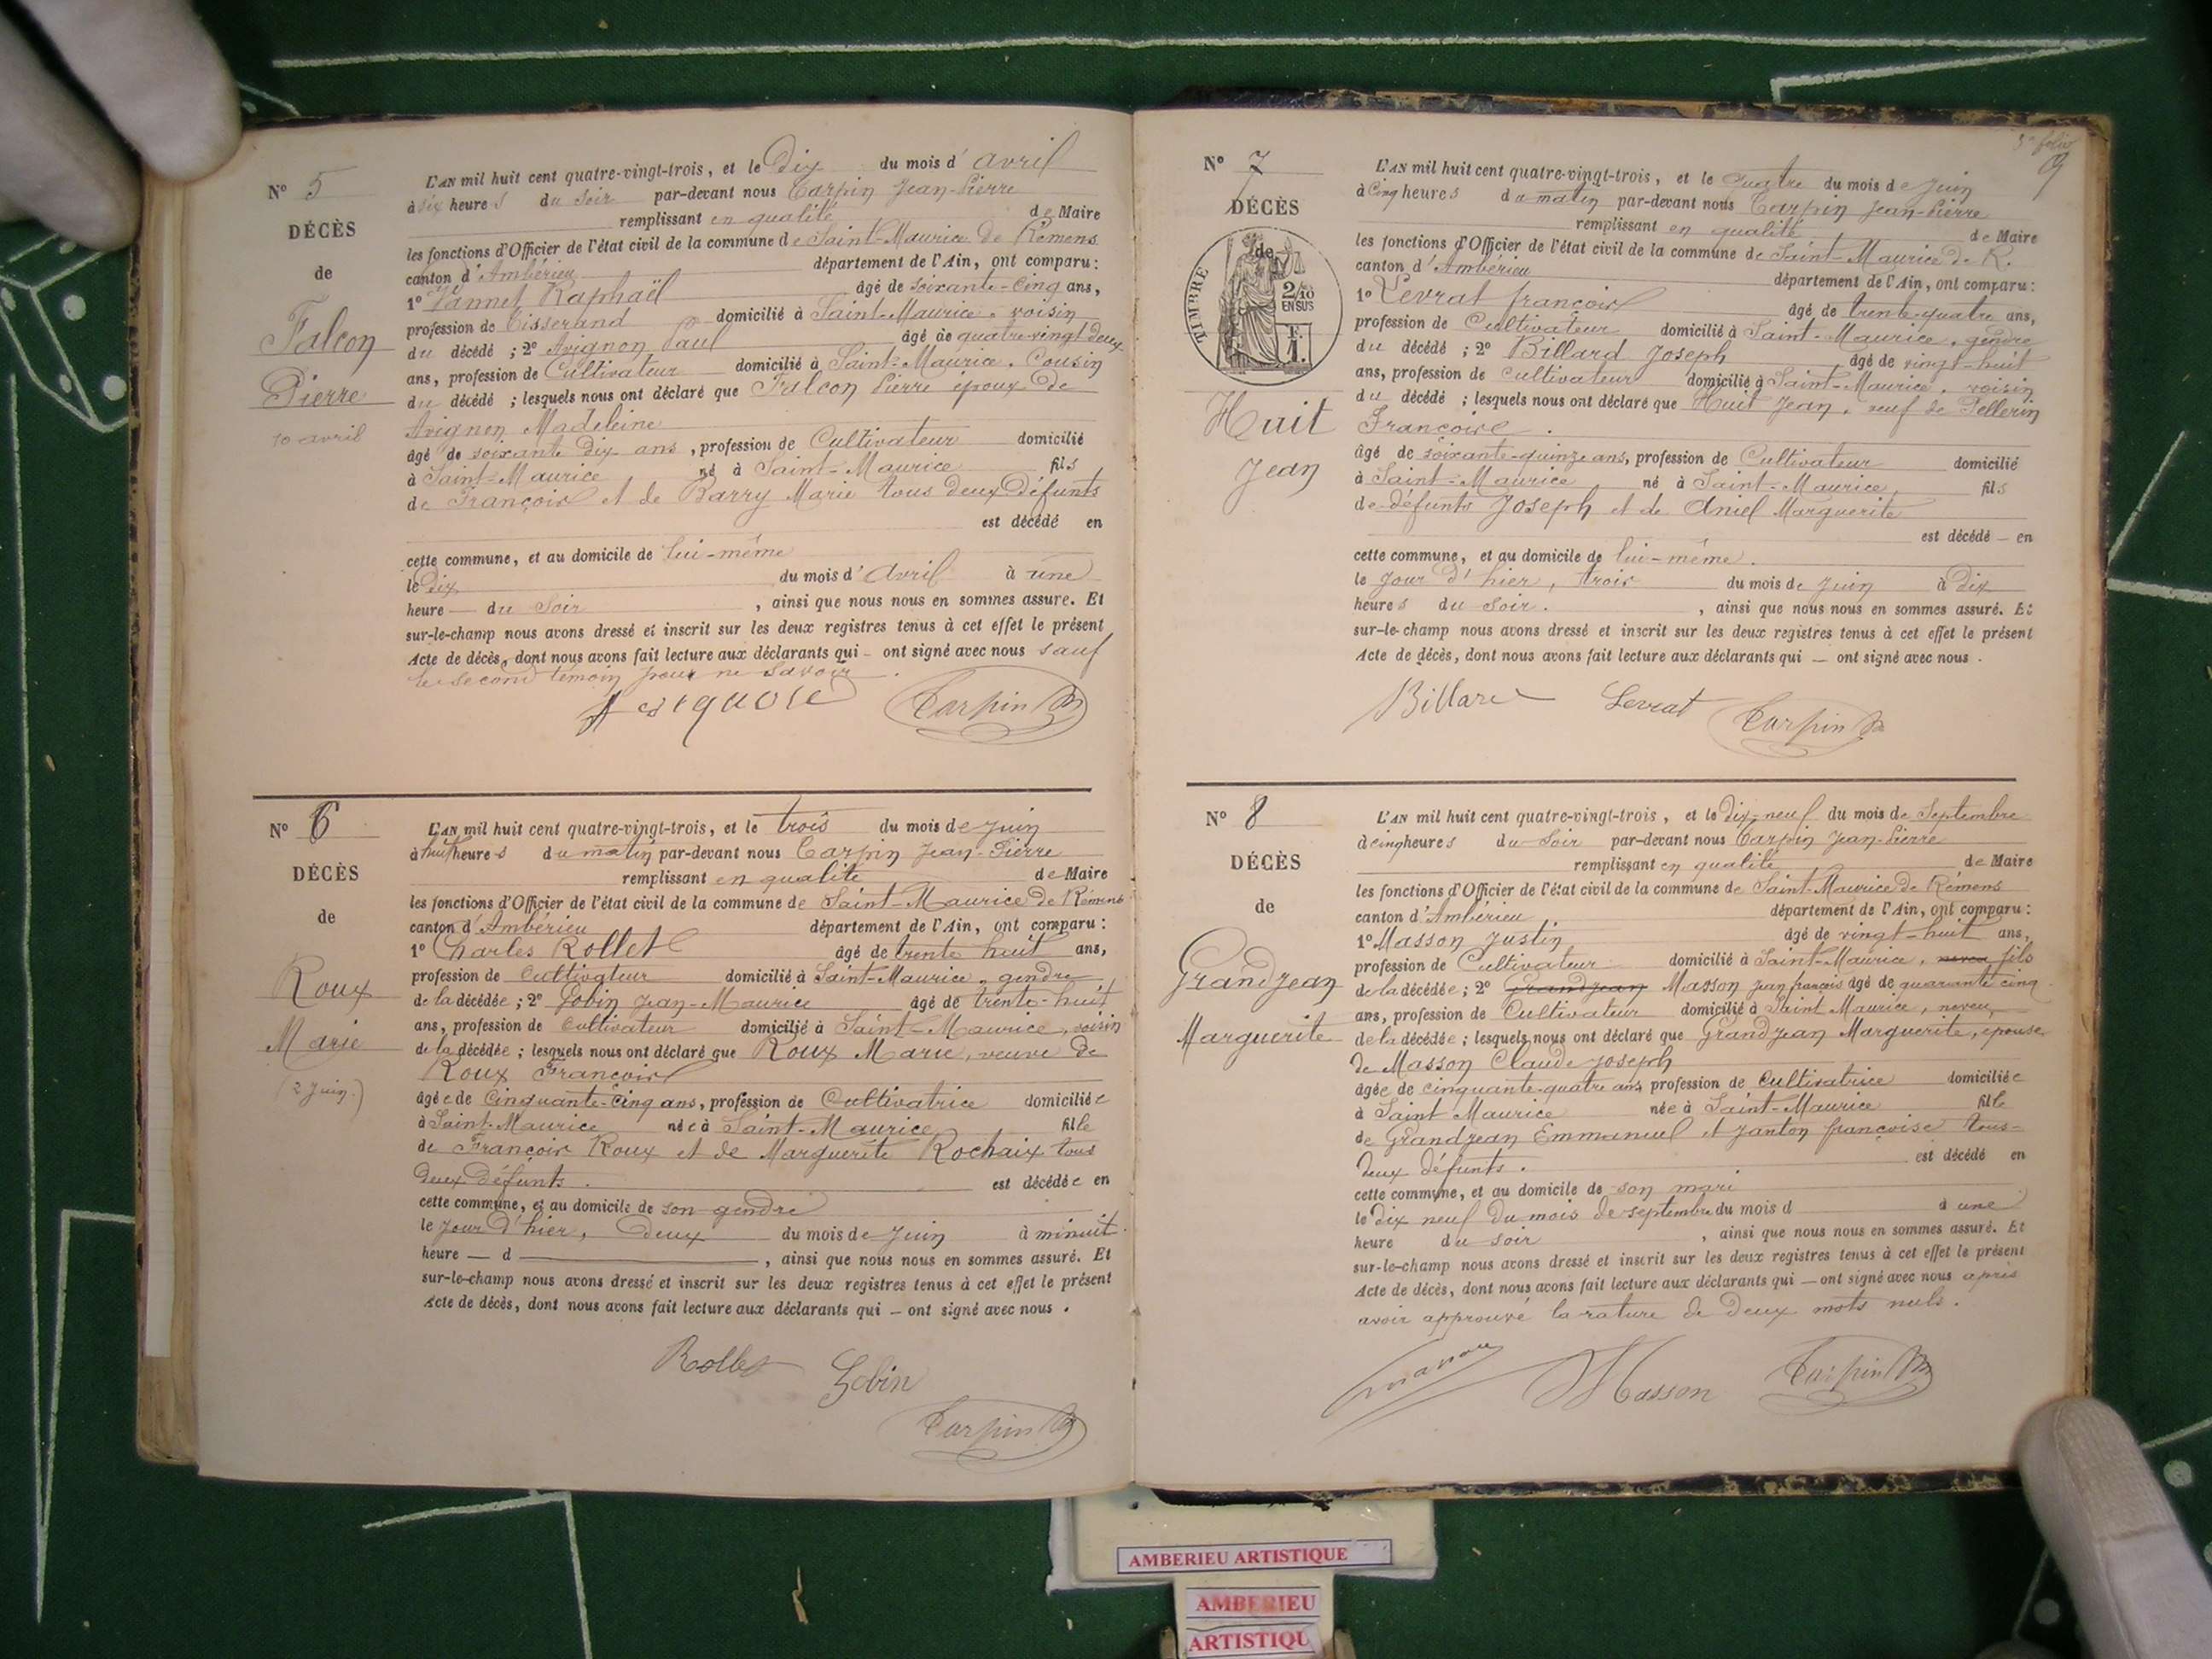 N° 5
DÉCÈS
de
Falcon
Pierre
10 avril
L'AN mil huit cent quatre-vingt-trois, et le Dix du mois d'avril
à six heures du soir par-devant nous Carpin Jean-Pierre
remplissant en qualité de Maire
les fonctions d'Officier de l'état civil de la commune de Saint-Maurice de Rémens
canton d'Ambérieu département de l'Ain, ont comparu :
1° Vannet Raphaël âgé de soixante-cinq ans,
profession de Tisserand domicilié à Saint-Maurice, voisin
du décédé ; 2° Avignon Paul âgé de quatre-vingt deux
ans, profession de Cultivateur domicilié à Saint-Maurice, Cousin
du décédé ; lesquels nous ont déclaré que Falcon Pierre époux de
Avignon Madeleine
âgé de soixante Dix ans, profession de Cultivateur domicilié
à Saint-Maurice né à Saint-Maurice fils
de François et de Barry Marie tous deux Défunts
est décédé en
cette commune, et au domicile de lui-même
le Dix du mois d'Avril à une
heure — du Soir , ainsi que nous nous en sommes assuré. Et
sur-le-champ nous avons dressé et inscrit sur les deux registres tenus à cet effet le présent
Acte de décès, dont nous avons fait lecture aux déclarants qui — ont signé avec nous sauf
le second témoin pour ne savoir.
Carpin
N° 6
DÉCÈS
de
Roux
Marie
(2 Juin.)
L'AN mil huit cent quatre-vingt-trois, et le trois du mois de Juin
à huit heures du matin par-devant nous Carpin Jean-Pierre
remplissant en qualité de Maire
les fonctions d'Officier de l'état civil de la commune de Saint-Maurice de Rémens
canton d'Ambérieu département de l'Ain, ont comparu :
1° Charles Rollet âgé de trente huit ans,
profession de Cultivateur domicilié à Saint-Maurice, gendre
de la décédée ; 2° Gobin Jean-Maurice âgé de trente-huit
ans, profession de Cultivateur domicilié à Saint-Maurice, voisin
de la décédée ; lesquels nous ont déclaré que Roux Marie, veuve de
Roux François
âgée de Cinquante-Cinq ans, profession de Cultivatrice domiciliée
à Saint-Maurice née à Saint-Maurice fille
de François Roux et de Marguerite Rochaix tous
deux Défunts. est décédée en
cette commune, et au domicile de son gendre
le jour d'hier, Deux du mois de Juin à minuit
heure — d — , ainsi que nous nous en sommes assuré. Et
sur-le-champ nous avons dressé et inscrit sur les deux registres tenus à cet effet le présent
Acte de décès, dont nous avons fait lecture aux déclarants qui — ont signé avec nous .
Rollet Gobin
Carpin
5e folio
9
N° 7
DÉCÈS
de
TIMBRE
2/10
EN SUS
F.
1.
Huit
Jean
L'AN mil huit cent quatre-vingt-trois, et le quatre du mois de Juin
à Cinq heures du matin par-devant nous Carpin Jean-Pierre
remplissant en qualité de Maire
les fonctions d'Officier de l'état civil de la commune de Saint-Maurice de R.
canton d'Ambérieu département de l'Ain, ont comparu :
1° Levrat François âgé de trente-quatre ans,
profession de Cultivateur domicilié à Saint-Maurice, gendre
du décédé ; 2° Billard Joseph âgé de vingt-huit
ans, profession de Cultivateur domicilié à Saint-Maurice, voisin
du décédé ; lesquels nous ont déclaré que Huit Jean, veuf de Pellerin
Françoise.
âgé de soixante-quinze ans, profession de Cultivateur domicilié
à Saint-Maurice né à Saint-Maurice fils
de défunts Joseph et de Aniel Marguerite
est décédé — en
cette commune, et au domicile de lui-même.
le jour d'hier, trois du mois de Juin à dix
heures du soir. , ainsi que nous nous en sommes assuré. Et
sur-le-champ nous avons dressé et inscrit sur les deux registres tenus à cet effet le présent
Acte de décès, dont nous avons fait lecture aux déclarants qui — ont signé avec nous .
Billard Levrat Carpin
N° 8
DÉCÈS
de
Grandjean
Marguerite
L'AN mil huit cent quatre-vingt-trois, et le dix-neuf du mois de Septembre
à cinq heures du Soir par-devant nous Carpin Jean-Pierre
remplissant en qualité de Maire
les fonctions d'Officier de l'état civil de la commune de Saint-Maurice de Rémens
canton d'Ambérieu département de l'Ain, ont comparu :
1° Masson Justin âgé de vingt-huit ans,
profession de Cultivateur domicilié à Saint-Maurice, neveu fils
de la décédée ; 2° Grandjean Masson Jean François âgé de quarante cinq
ans, profession de Cultivateur domicilié à Saint Maurice, neveu,
de la décédée ; lesquels nous ont déclaré que Grandjean Marguerite, épouse
de Masson Claude Joseph
âgée de cinquante-quatre ans, profession de Cultivatrice domiciliée
à Saint Maurice née à Saint-Maurice fille
de Grandjean Emmanuel et Janton françoise tous
deux défunts. est décédé en
cette commune, et au domicile de son mari
le dix neuf du mois de septembre du mois d à une
heure du soir , ainsi que nous nous en sommes assuré. Et
sur-le-champ nous avons dressé et inscrit sur les deux registres tenus à cet effet le présent
Acte de décès, dont nous avons fait lecture aux déclarants qui — ont signé avec nous après
avoir approuvé la rature de Deux mots nuls.
Masson Carpin
AMBERIEU ARTISTIQUE
AMBERIEU
ARTISTIQU